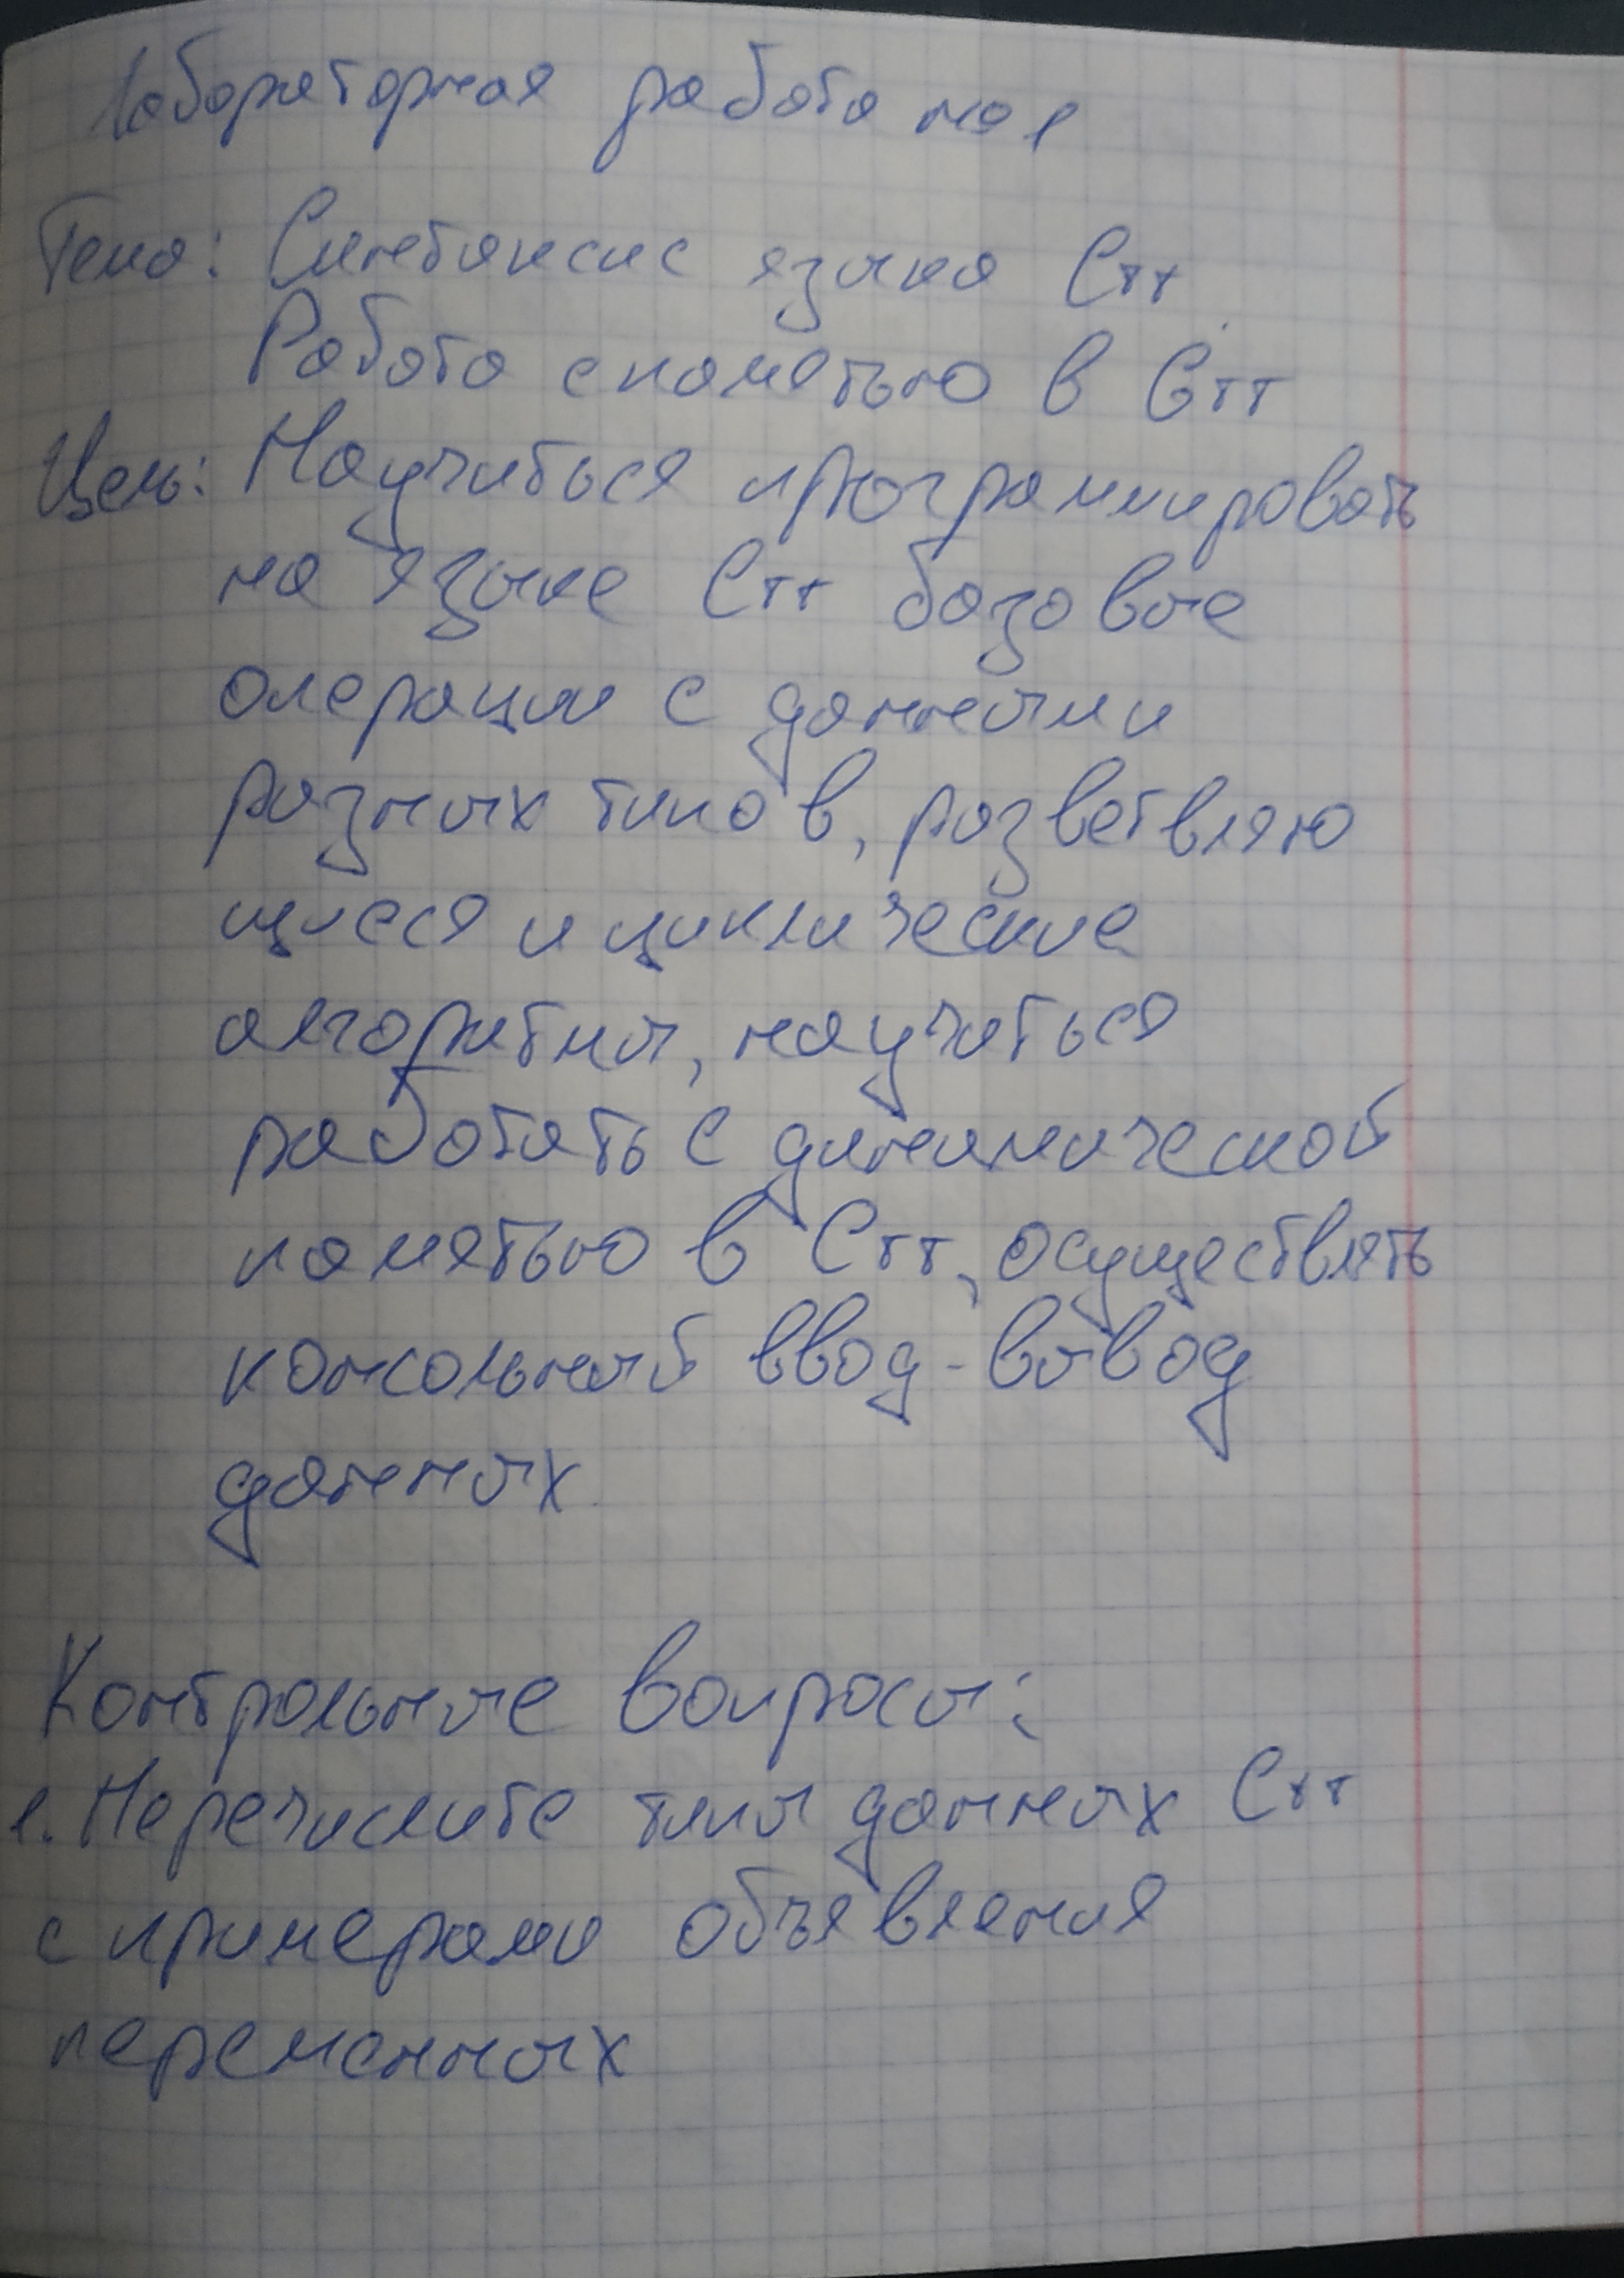 Лабораторная работа no 1
Тема: Синтаксис языка С++
Работа с памятью в С++
Цель: Научиться программировать
на языке С++ базовые
операции с данными
разных типов, разветвляю
щиеся и циклические
алгоритмы, научиться
работать с динамической
памятью в С++, осуществлять
консольный ввод-вывод
данных
Контрольные вопросы:
1. Перечислите типы данных С++
с примерами объявления
переменных